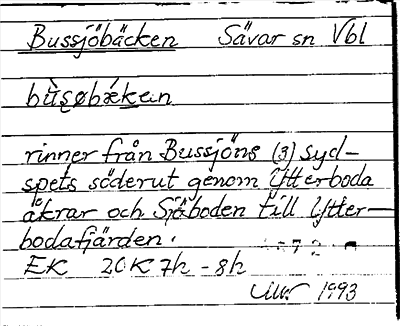 Bussjöbäcken Sävar sn Vbl
bùs̨øbǽkan
rinner från Bussjöns (3) syd-
spets söderut genom Ytterboda
åkrar och Sjöboden till Ytter-
bodafjärden.
EK 20K 7h - 8h
1993